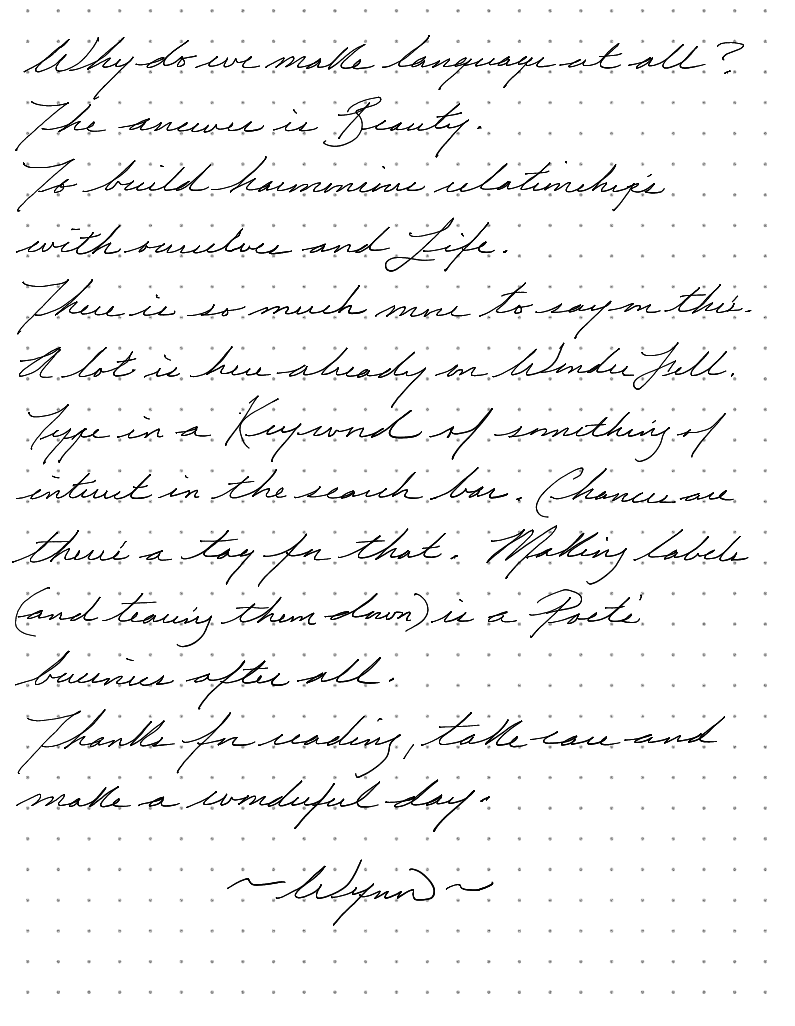 Why do we make language at all?
The answer is Beauty.
To build harmonious relationships
with ourselves and Life.
There is so much more to say on this.
A lot is here already on Wonder
Type in a Keyword of something of
interest in the search bar. Chances are
there's a tag for that. Making labels
(and tearing them down) is a Poet's
business after all.
Thanks for reading, take care and
make a wonderful day.
~ Wynn ~